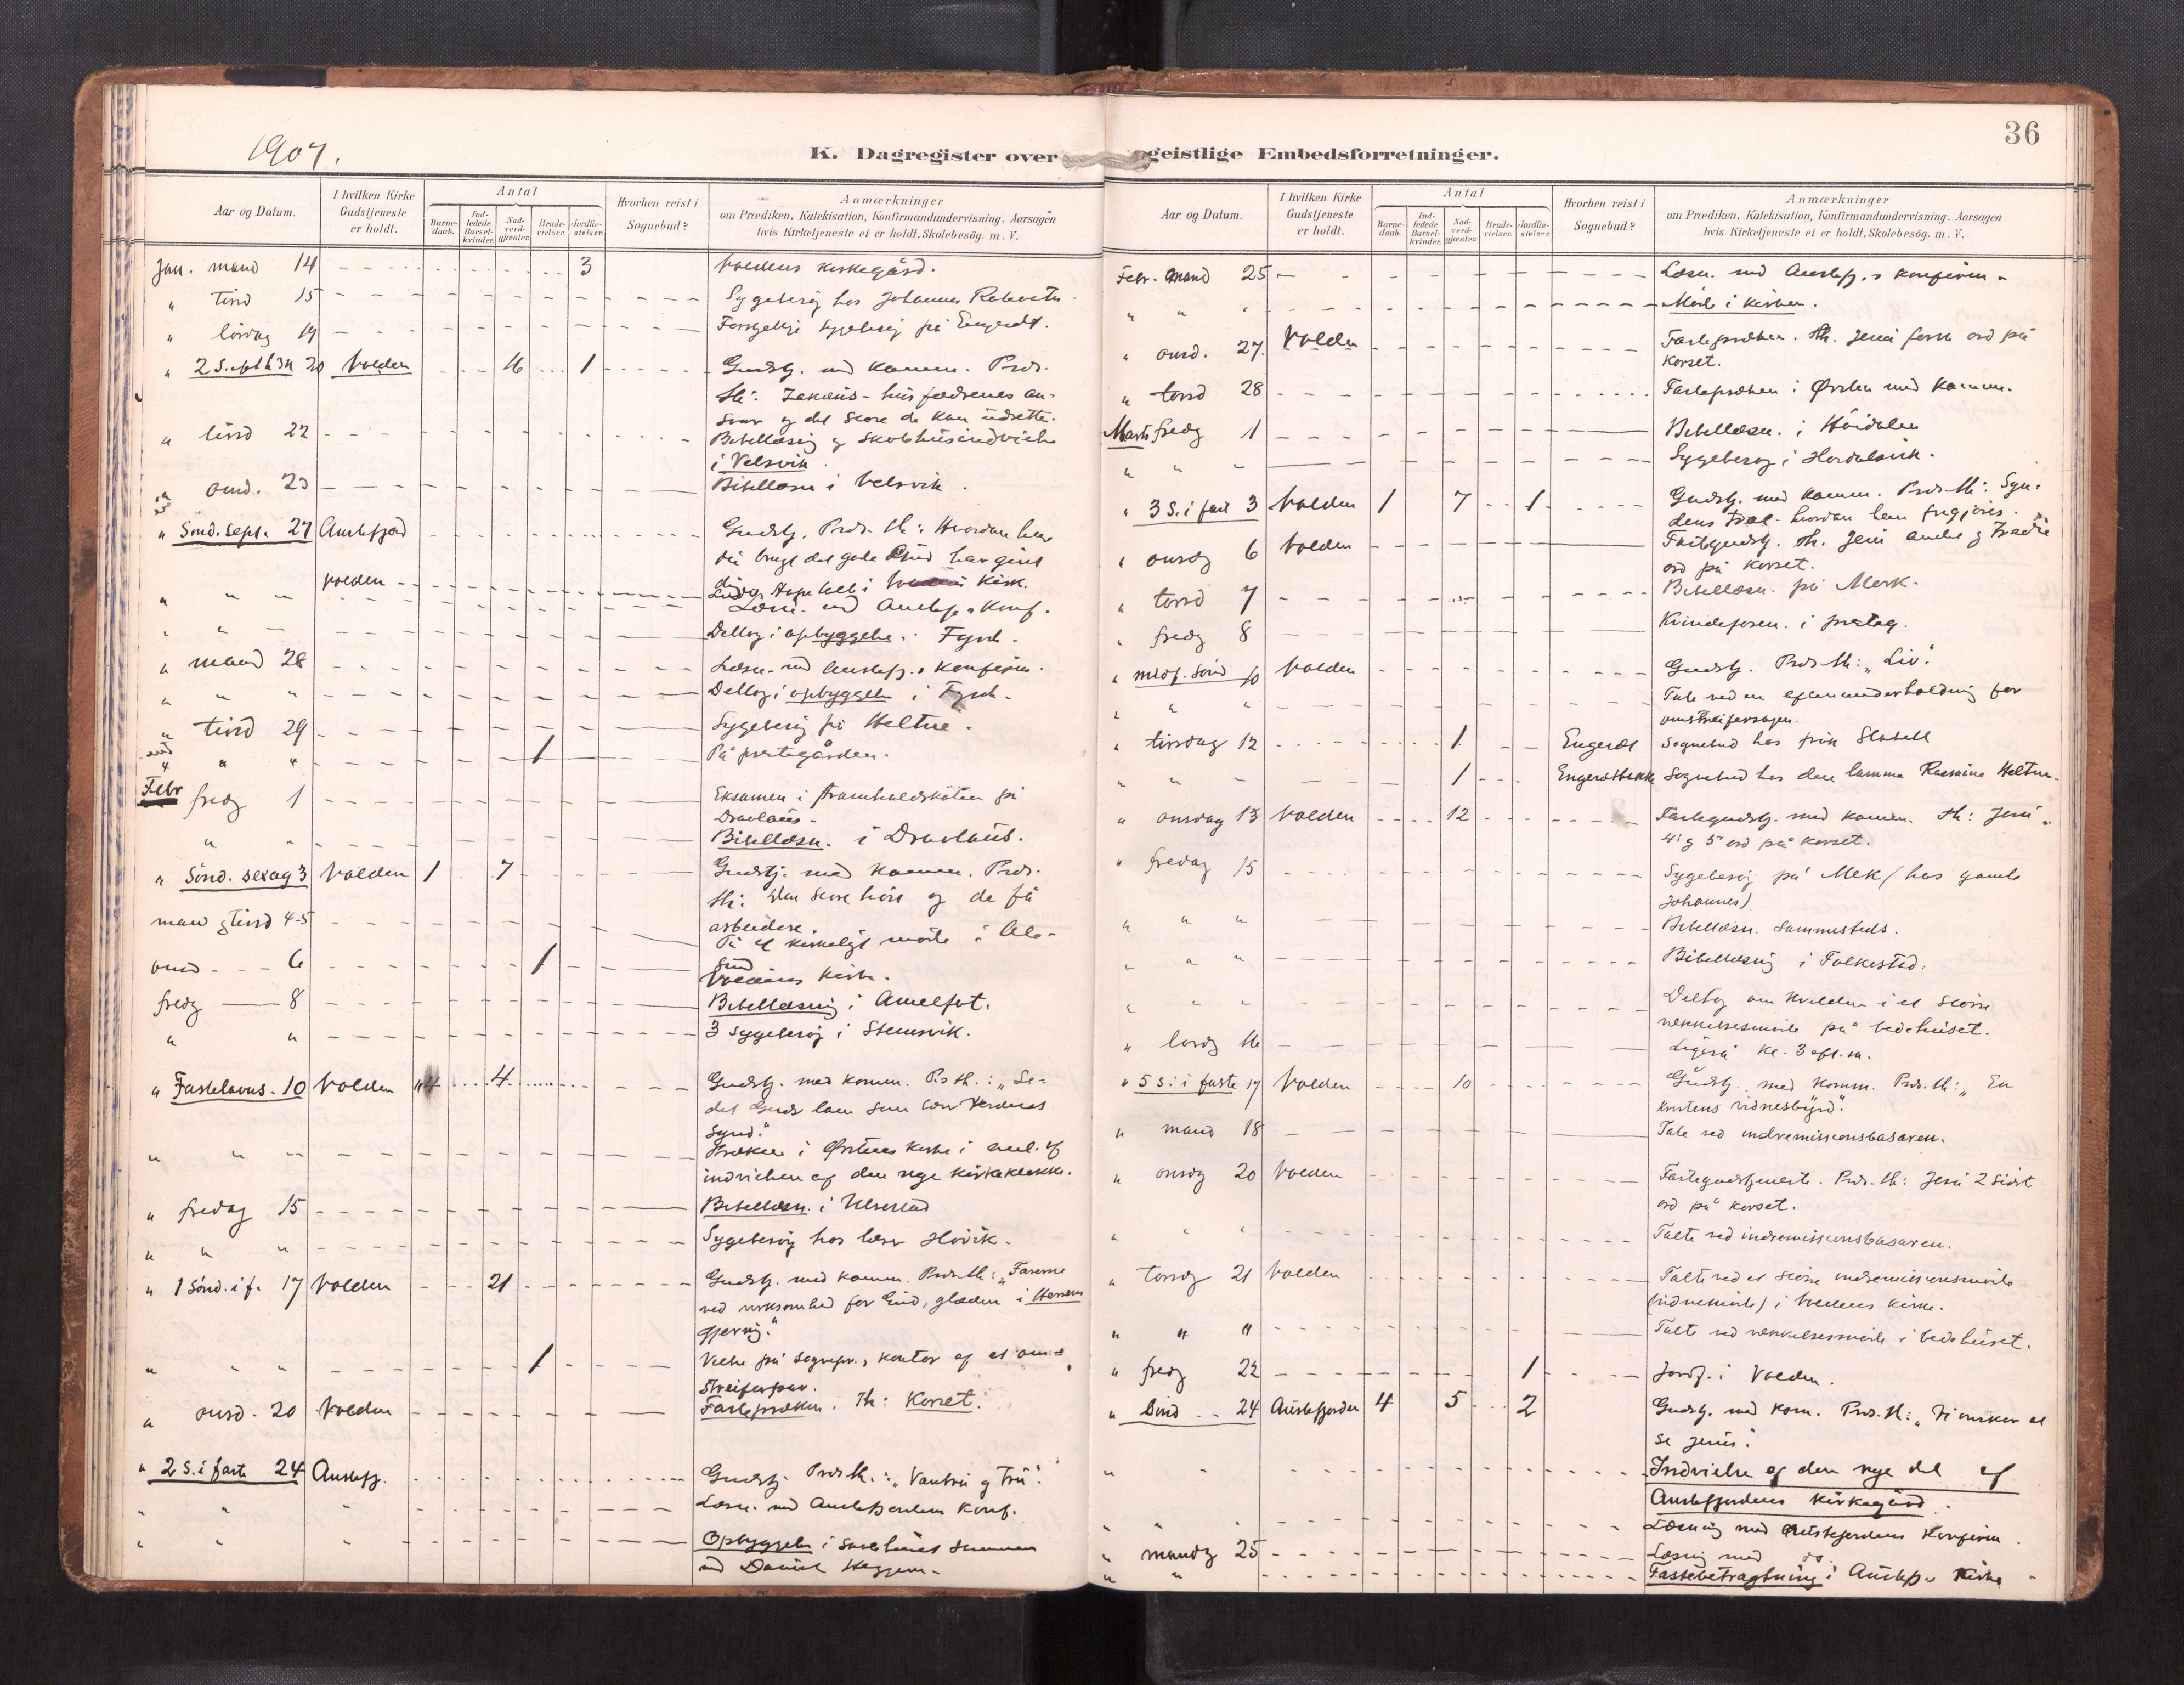 1907.
K. Dagregister over
Aar og Datum.
I hvilken Kirke Gudstjeneste er holdt.
Antal
Barnedaab.
Indledede Barselkvinder.
Nadverdgjæster.
Brudevielser.
Jordfæstelser.
Hvorhen reist i Sognebud?
Anmærkninger
om Prædiken, Katekisation, Konfirmandundervisning. Aarsagen
hvis Kirketjeneste ei er holdt, Skolebesøg. m. V.
Jan. mand 14 3 Voldens kirkegård.
" tirsd 15 Sygebesøg hos Johannes
" lørdag 19 Sygebesøg på Engeset.
" 2 S. 20 Volden 16 1 Gudstj. med Komm. Præd.
th: Zakæus - hus fædrenes an-
svar og det store de kan udrette.
" tirsd 22 Bibellæsnig og Skolehusindvielse
i Velsvik
" onsd. 23 Bibellæsn i Velsvik.
" Sønd. sept. 27 Austefjord Gudstj. Præd. th: Hvordan har
du brugt det gode Gud har givet
dig.
" " " Volden i Kirk.
Læsn. med Austefj.s Konf.
" " " Deltog i opbyggelse i
" mand 28 Læsn. med Austefj.s Konfirm.
" " " Deltog i opbyggelse i
" tirsd 29 Sygebesøg på Heltne.
" " " 1 På prestegården.
Febr fredg 1 Eksamen i framhaldskolen på
Dravlaus.
" " Bibellæsn. i Dravlaus.
" Sønd. sexag 3 Volden 1 7 Gudstj. med Komm. Præd.
th: Den store høst og de få
arbeidere.
mand og tirsd 4-5 På et kirkeligt møde i Ale-
sund
onsd - - 6 1 Voldens Kirke.
fredg — 8 Bibellæsnig i Amelfot.
" " 3 Sygebesøg i Steinsvik.
" Fastelavns. 10 Volden 4 4 Gudstj. med Komm. Pr. th.: "Se
det Guds lam som bær Verdens
Synd."
" " " Præken i Ørstens Kirke i anl. af
indvielsen af den nye kirkeklokke.
" fredag 15 Bibellæsn. i Ulvestad
" " " Sygebesøg hos lærer Høvik.
" 1 Sønd. i f. 17 Volden 21 Gudstj. med Komm. Præd. th: "Farerne
ved virksomhed for Gud, glæden i Herrens
gjerning."
" " " 1 Vielse på Sognepr.s kontor af et om-
streiferpar.
" onsd. 20 Volden Fastepræken. Th: Korset.
" 2 S. i faste 24 Austefj. Gudstj. Præd. th.: "Vantro og Tro".
" " " Læsn. med Austefjordens Konf.
" " " Opbyggelse i Skolehuset sammen
med Daniel Heggen.
36
geistlige Embedsforretninger.
Aar og Datum.
I hvilken Kirke Gudstjeneste er holdt.
Antal
Barnedaab.
Indledede Barselkvinder.
Nadverdgjæster.
Brudevielser.
Jordfæstelser.
Hvorhen reist i Sognebud?
Anmærkninger
om Prædiken, Katekisation, Konfirmandundervisning. Aarsagen
hvis Kirketjeneste ei er holdt, Skolebesøg. m. V.
Febr. mand 25 Læsn. med Austefj.s konfirm.
" " " Møde i kirken.
" onsd. 27. Volden Fastepræken. Th. Jesu første ord på
Korset.
" torsd 28 Fastepræken i Ørsten med Komm.
Marts fredg 1 Bibellæsn. i Høidalen
" " " Sygebesøg i
" 3 S. i fast 3 Volden 1 7 1 Gudstj. med Komm. Præd. th: Syn-
dens træl - hvordan han frigjøres.
" onsdg 6 Volden Fastegudstj. Th. Jesu andet og tredie
ord på Korset.
" torsd 7 Bibellæsn. på Mork.
" fredg 8 Kvindeforen. i
" midf. sønd 10 Volden Gudstj. Præd. th: "Liv".
" " " Tale ved en aftenunderholdning for
omstreifersagen.
" tirsdag 12 1 Engeset Sognebud hos frøk
" " " 1 Engesetbakk Sognebud hos den lamme Rasmine Heltne.
" onsdag 13 Volden 12 Fastegudstj. med komm. th: Jesu
4' og 5' ord på korset.
" fredag 15 Sygebesøg på Mek (hos gamle
Johannes)
" " " Bibellæsn. sammesteds.
" " " Bibellæsnig i Folkestad.
" " " Deltog om kvelden i et større
vækkelsesmøde på bedehuset.
" lørdg 16 Ligeså kl. 3 eft. m.
" 5 S. i faste 17 Volden 10 Gudstj. med Komm. Præd. th: "En
kristens vidnesbyrd".
" mand 18 Tale ved indremissionsbasaren.
" onsdg 20 Volden Fastegudstjeneste. Præd. th: Jesu 2 sidst
ord på korset.
" " " Talte ved indremissionsbasaren.
" torsdg 21 Volden Talte ved et større indremissionsmøde
(vidnemøde) i Voldens kirke.
" " " Talte ved vækkelsesmøde i bedehuset.
" fredg 22 1 Jordf. i Volden.
" Sønd - - 24 Austefjorden 4 5 2 Gudstj. med Kom. Præd. th: "Vi ønsker at
se Jesus".
" " Indvielse af den nye del af
Austefjordens kirkegård.
" " Læsning med Austefjordens Konfirm.
" mandg 25 Læsnig med do.
" " Fastebetragtning i Austefj. Kirke